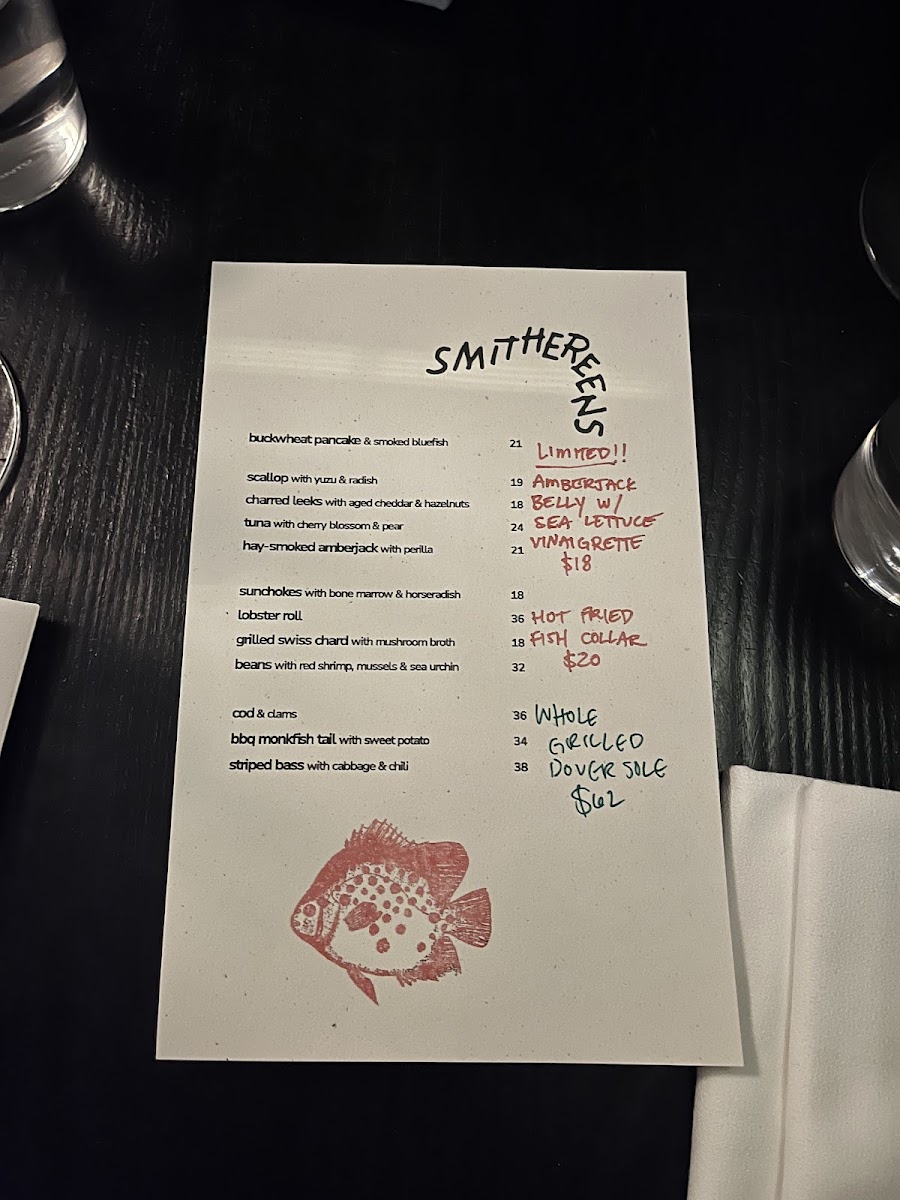 SMITHEREENS
buckwheat pancake & smoked bluefish 21
scallop with yuzu & radish 19
charred leeks with aged cheddar & hazelnuts 18
tuna with cherry blossom & pear 24
hay-smoked amberjack with perilla 21
sunchokes with bone marrow & horseradish 18
lobster roll 36
grilled swiss chard with mushroom broth 18
beans with red shrimp, mussels & sea urchin 32
cod & clams 36
bbq monkfish tail with sweet potato 34
striped bass with cabbage & chili 38
LIMITED!!
AMBERJACK
BELLY W/
SEA LETTUCE
VINAIGRETTE
$18
HOT FRIED
FISH COLLAR
$20
WHOLE
GRILLED
DOVER SOLE
$62